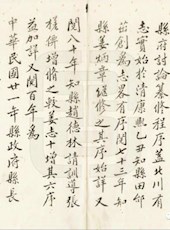 縣府討論纂修程序蓋北川有
志實始於清康熙乙丑知縣田邰
茹創爲志畧有序閲七十三年知
縣姜炳章繼修之其序始詳又
閲八十年知縣趙德林請訓導張
槎俾增修之較姜志十增其六序
益加詳又閲百年爲
中華民國廿一年縣政府縣長